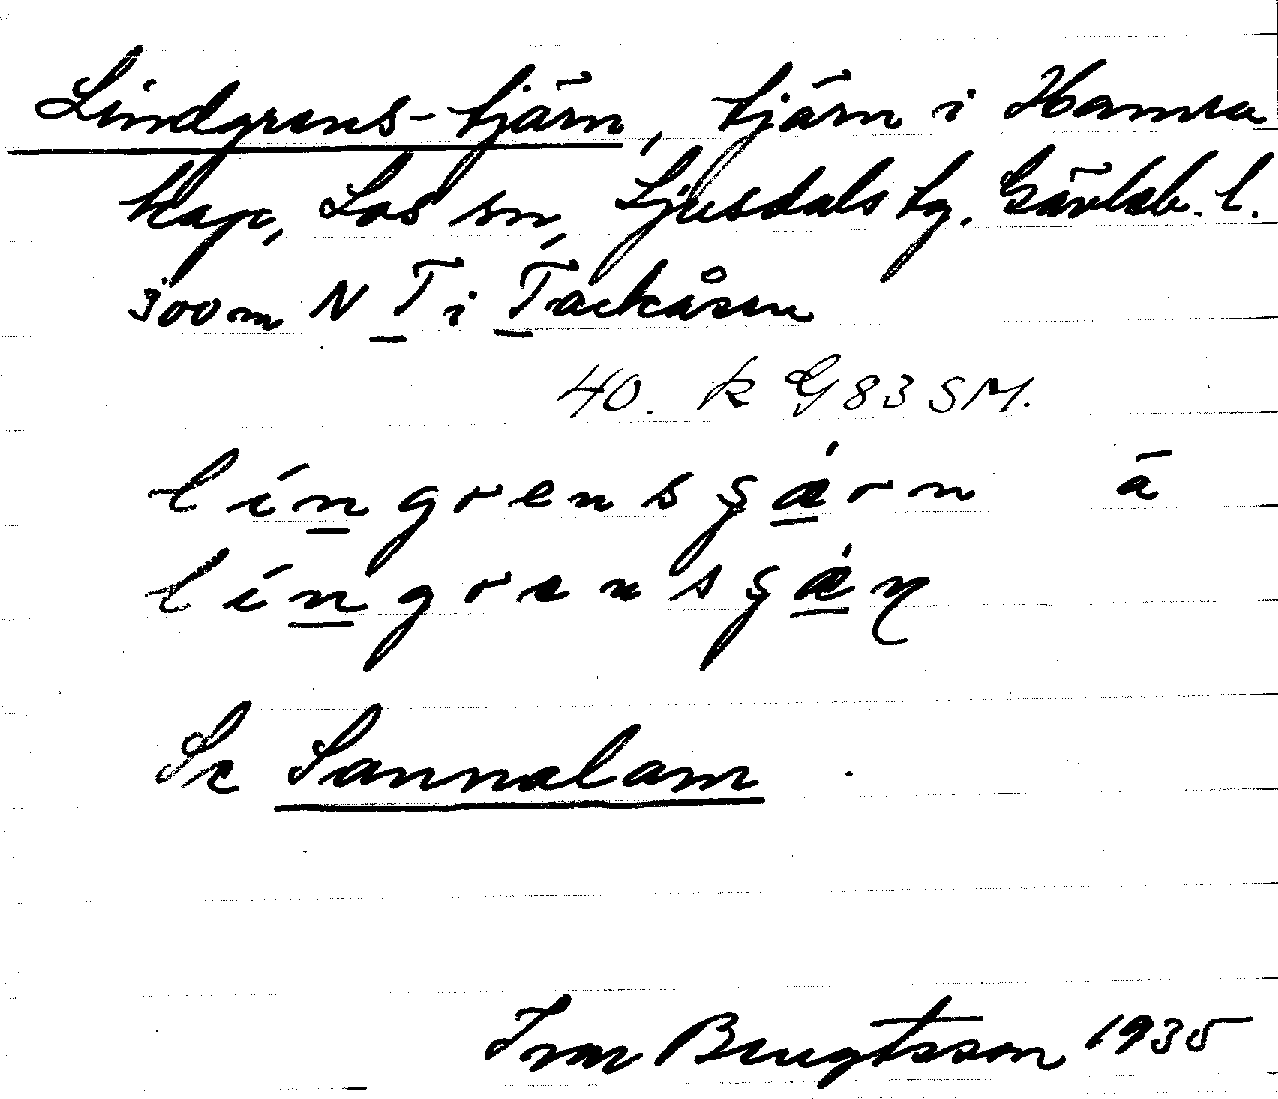 Lindgrens-tjärn, tjärn i Hamra
kap, Los sn, Ljusdals tg. Gävleb. l.
300 m N T i Tackåsen
40. k G 83 SM.
língrensʂæ̀rn ā
língrensʂæ̀ɳ
Se Sannalam
Ivar Bengtsson 1935